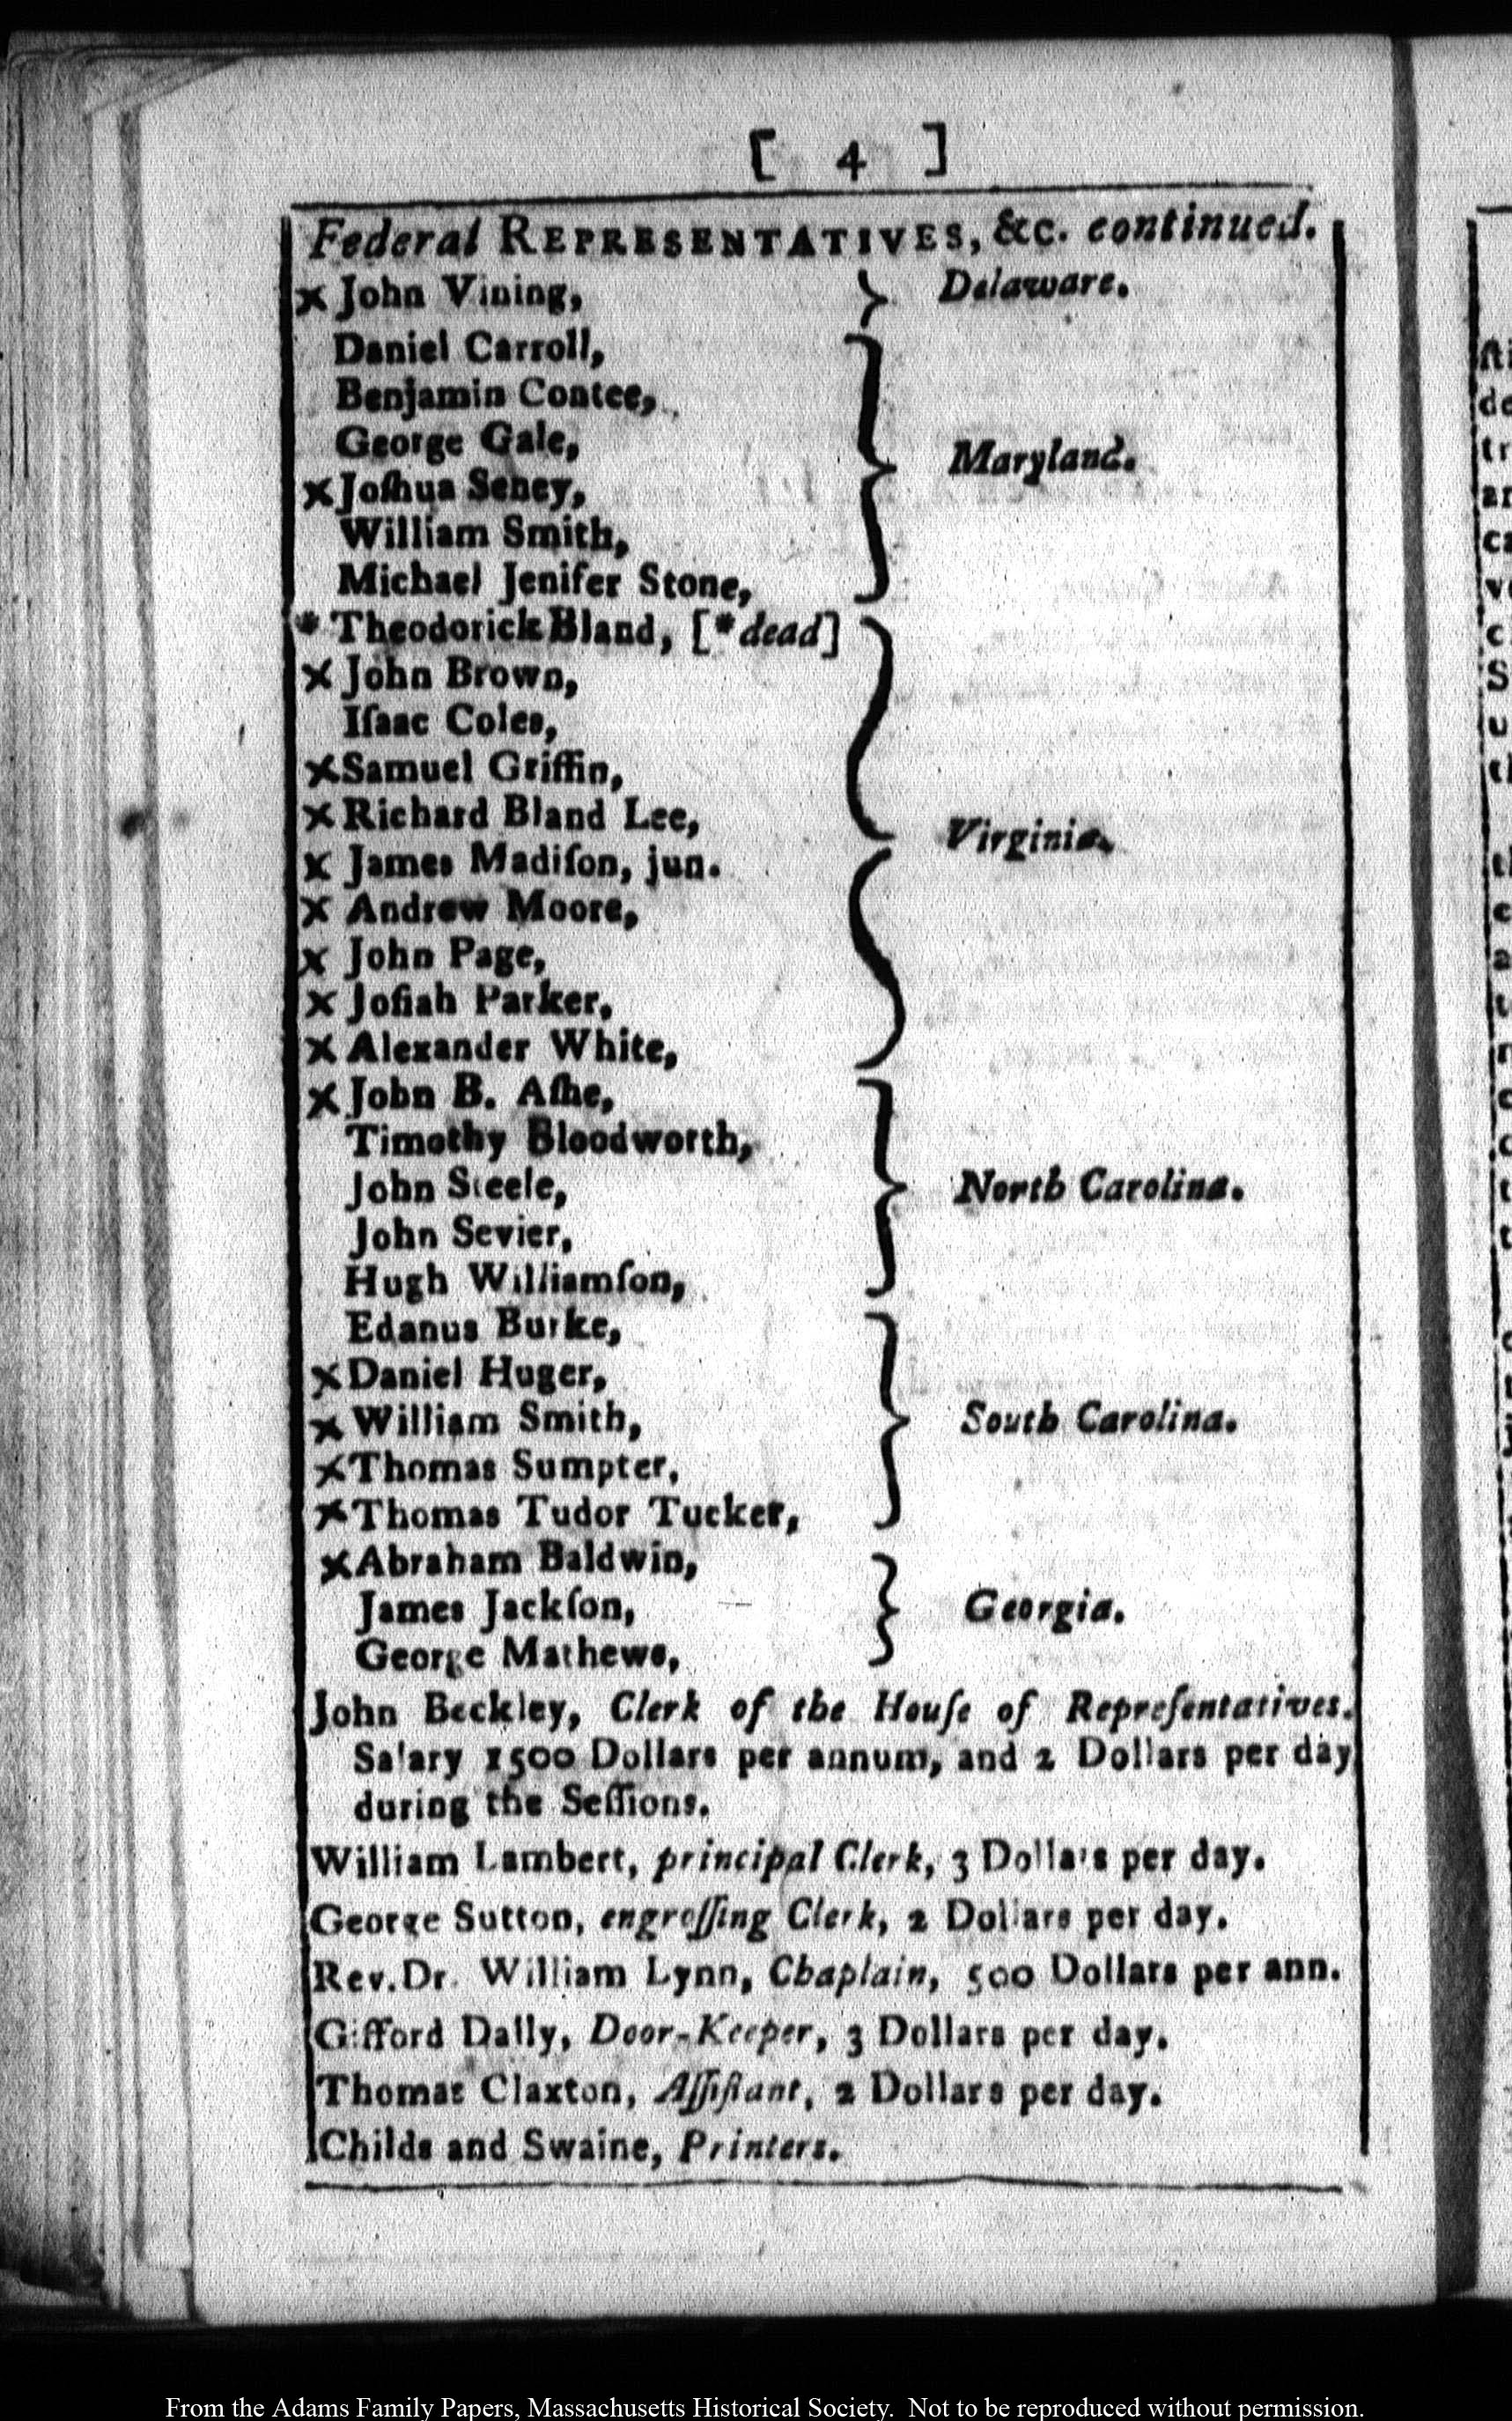 [ 4 ]
Federal REPRESENTATIVES, &c. continued.
× John Vining, } Delaware.
Daniel Carroll,
Benjamin Contee,
George Gale,
× Joſhua Seney, } Maryland.
William Smith,
Michael Jenifer Stone,
* Theodorick Bland, [*dead]
× John Brown,
Iſaac Coles,
× Samuel Griffin,
× Richard Bland Lee,
× James Madiſon, jun. } Virginia.
× Andrew Moore,
× John Page,
× Joſiah Parker,
× Alexander White,
× John B. Aſhe,
Timothy Bloodworth,
John Steele, } North Carolina.
John Sevier,
Hugh Williamſon,
Edanus Burke,
× Daniel Huger,
× William Smith, } South Carolina.
× Thomas Sumpter,
× Thomas Tudor Tucker,
× Abraham Baldwin,
James Jackſon, } Georgia.
George Mathews,
John Beckley, Clerk of the Houſe of Repreſentatives.
Salary 1500 Dollars per annum, and 2 Dollars per day
during the Seſſions.
William Lambert, principal Clerk, 3 Dollars per day.
George Sutton, engroſſing Clerk, 2 Dollars per day.
Rev. Dr. William Lynn, Chaplain, 500 Dollars per ann.
Gifford Dally, Door-Keeper, 3 Dollars per day.
Thomas Claxton, Aſſiſtant, 2 Dollars per day.
Childs and Swaine, Printers.
From the Adams Family Papers, Massachusetts Historical Society. Not to be reproduced without permission.